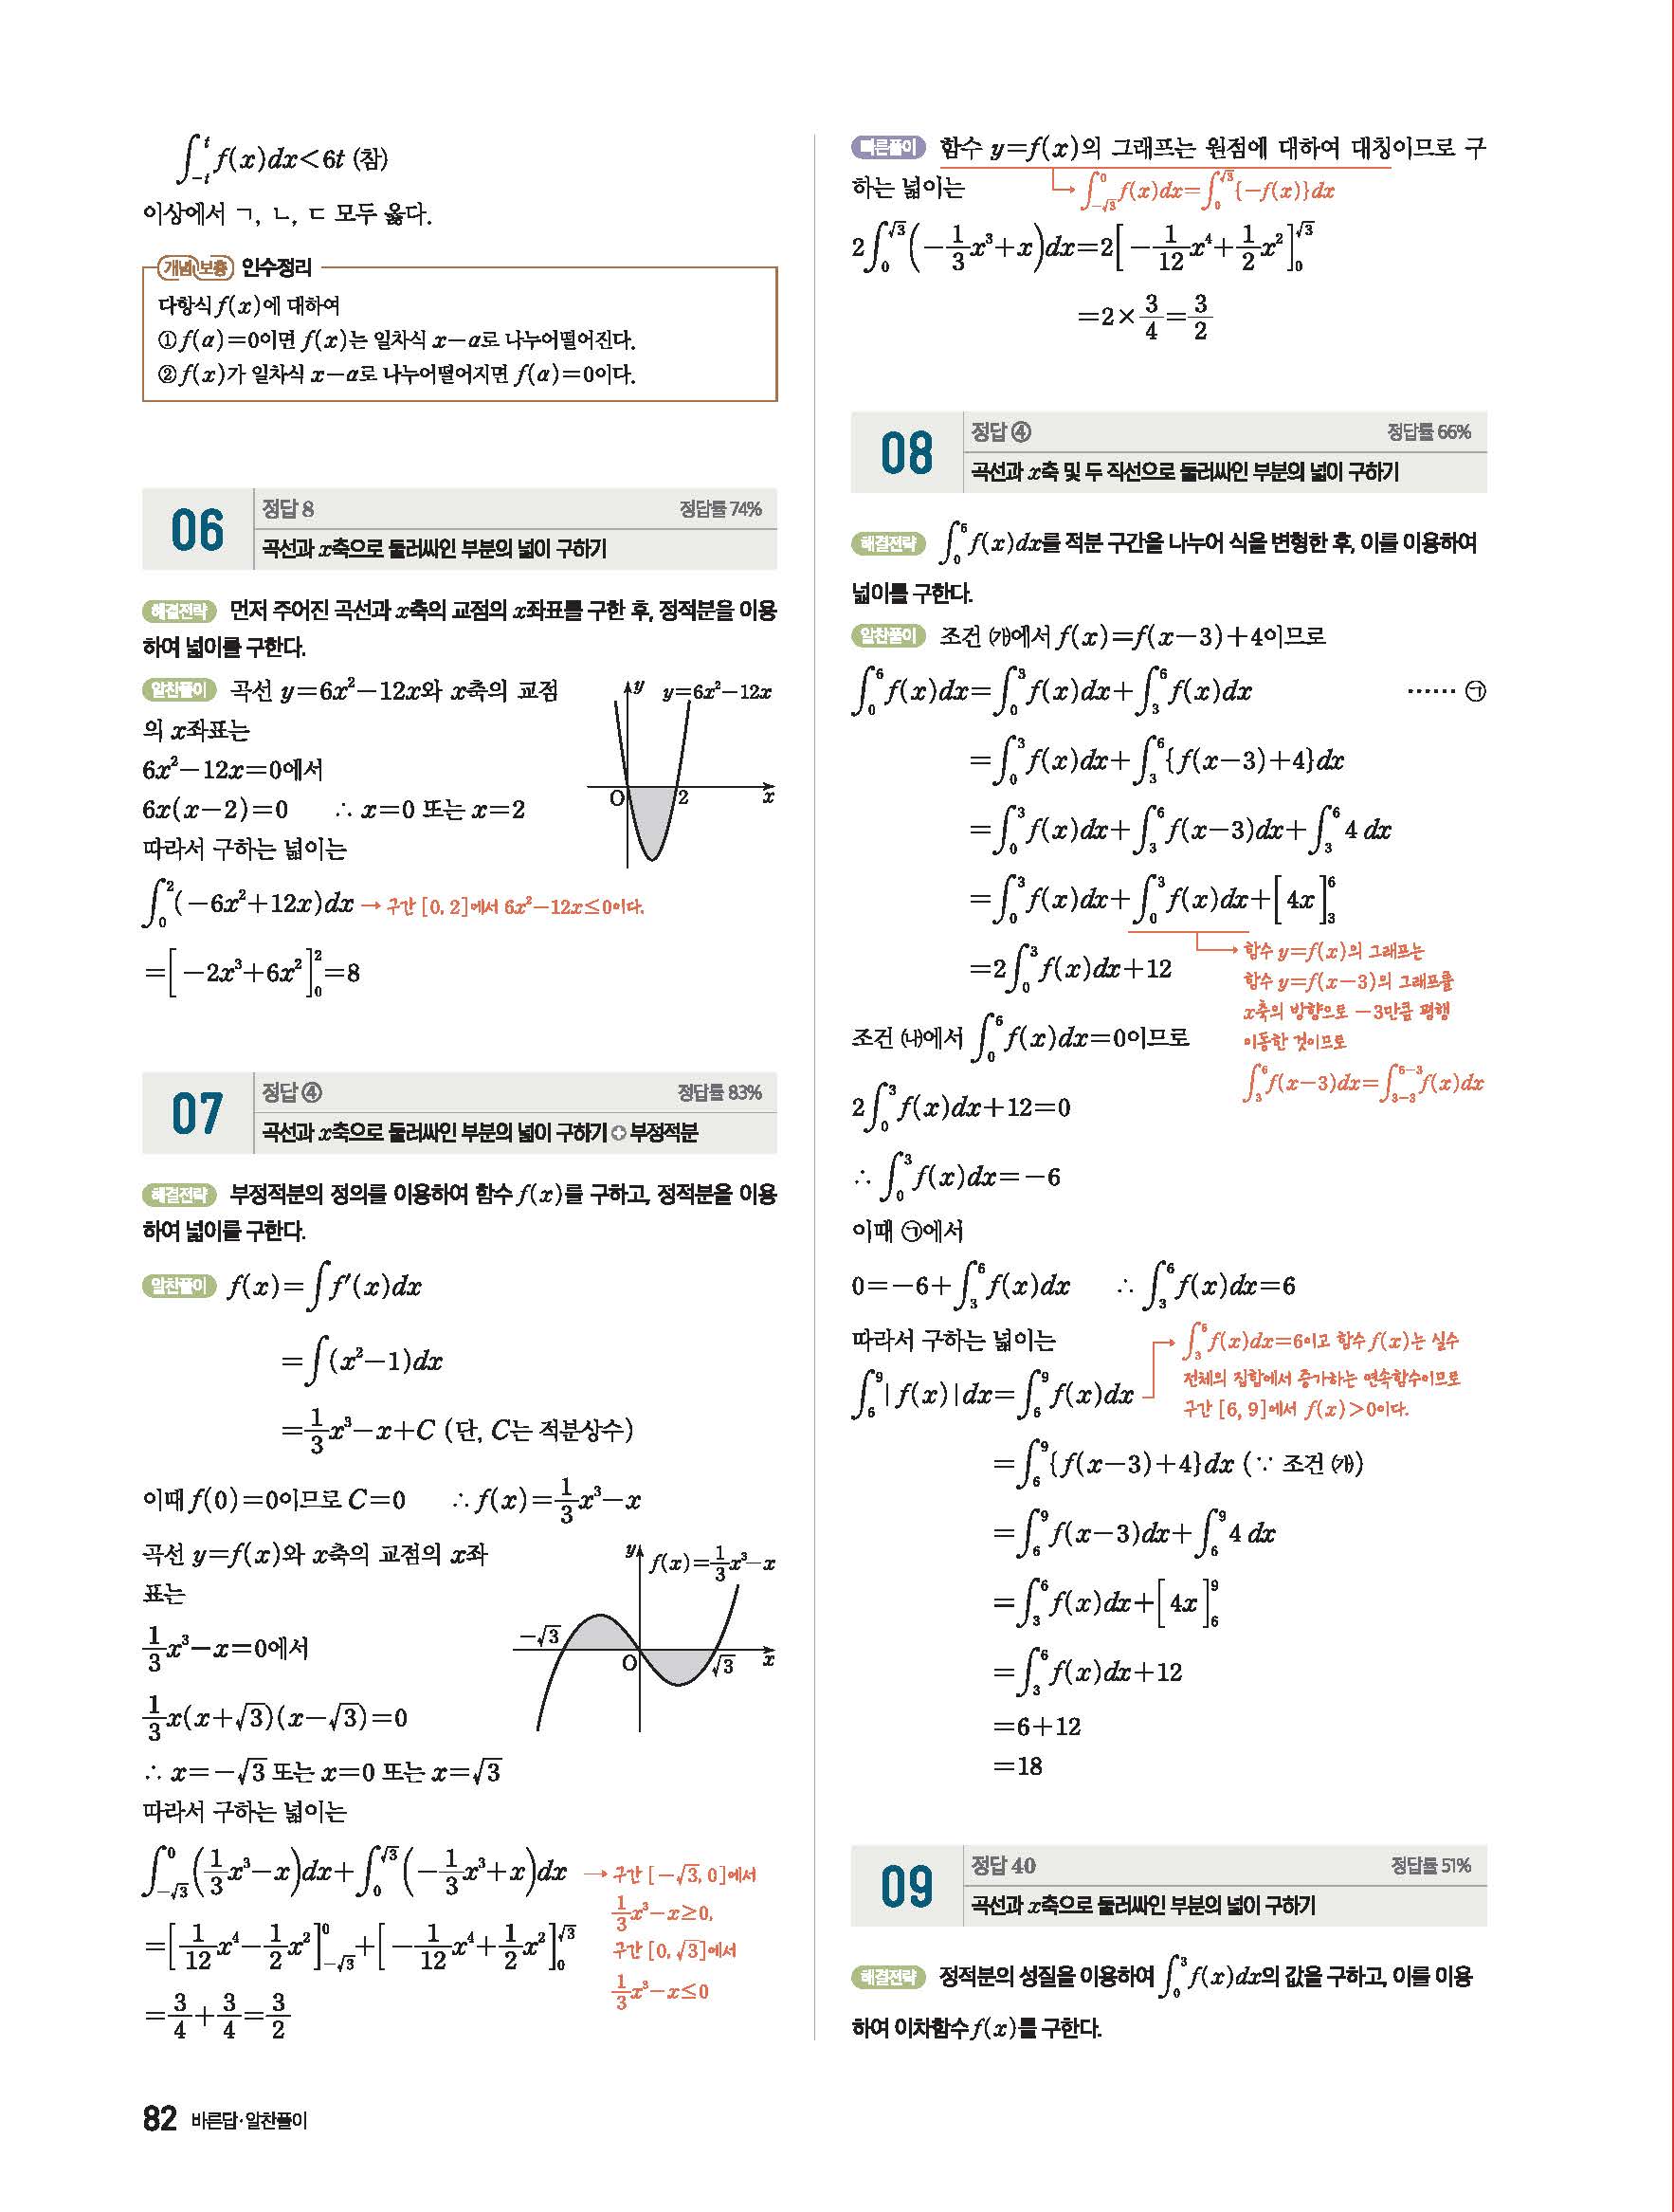 ∫_{-t}^{t} f(x)dx<6t (참)
이상에서 ㄱ, ㄴ, ㄷ 모두 옳다.
개념 보충 인수정리
다항식 f(x)에 대하여
① f(α)=0이면 f(x)는 일차식 x-α로 나누어떨어진다.
② f(x)가 일차식 x-α로 나누어떨어지면 f(α)=0이다.
06 정답 8 정답률 74%
곡선과 x축으로 둘러싸인 부분의 넓이 구하기
해결전략 먼저 주어진 곡선과 x축의 교점의 x좌표를 구한 후, 정적분을 이용
하여 넓이를 구한다.
알찬풀이 곡선 y=6x²-12x와 x축의 교점
의 x좌표는
6x²-12x=0에서
6x(x-2)=0 ∴ x=0 또는 x=2
따라서 구하는 넓이는
y y=6x²-12x
O 2 x
∫_{0}^{2}(-6x²+12x)dx → 구간 [0, 2]에서 6x²-12x≤0이다.
=[-2x³+6x²]_{0}^{2}=8
07 정답 ④ 정답률 83%
곡선과 x축으로 둘러싸인 부분의 넓이 구하기 + 부정적분
해결전략 부정적분의 정의를 이용하여 함수 f(x)를 구하고, 정적분을 이용
하여 넓이를 구한다.
알찬풀이 f(x)=∫f′(x)dx
=∫(x²-1)dx
=1/3x³-x+C (단, C는 적분상수)
이때 f(0)=0이므로 C=0 ∴ f(x)=1/3x³-x
곡선 y=f(x)와 x축의 교점의 x좌
표는
1/3x³-x=0에서
1/3x(x+√3)(x-√3)=0
∴ x=-√3 또는 x=0 또는 x=√3
따라서 구하는 넓이는
y f(x)=1/3x³-x
-√3 O √3 x
∫_{-√3}^{0}(1/3x³-x)dx+∫_{0}^{√3}(-1/3x³+x)dx → 구간 [-√3, 0]에서
1/3x³-x≥0,
구간 [0, √3]에서
1/3x³-x≤0
=[1/12x⁴-1/2x²]_{-√3}^{0}+[-1/12x⁴+1/2x²]_{0}^{√3}
=3/4+3/4=3/2
82 바른답·알찬풀이
빠른풀이 함수 y=f(x)의 그래프는 원점에 대하여 대칭이므로 구
하는 넓이는
→ ∫_{-√3}^{0} f(x)dx=∫_{0}^{√3}{-f(x)}dx
2∫_{0}^{√3}(-1/3x³+x)dx=2[-1/12x⁴+1/2x²]_{0}^{√3}
=2×3/4=3/2
08 정답 ④ 정답률 66%
곡선과 x축 및 두 직선으로 둘러싸인 부분의 넓이 구하기
해결전략 ∫_{0}^{6} f(x)dx를 적분 구간을 나누어 식을 변형한 후, 이를 이용하여
넓이를 구한다.
알찬풀이 조건 ㈎에서 f(x)=f(x-3)+4이므로
∫_{0}^{6} f(x)dx=∫_{0}^{3} f(x)dx+∫_{3}^{6} f(x)dx ······ ㉠
=∫_{0}^{3} f(x)dx+∫_{3}^{6}{f(x-3)+4}dx
=∫_{0}^{3} f(x)dx+∫_{3}^{6} f(x-3)dx+∫_{3}^{6} 4 dx
=∫_{0}^{3} f(x)dx+∫_{0}^{3} f(x)dx+[4x]_{3}^{6}
=2∫_{0}^{3} f(x)dx+12
→ 함수 y=f(x)의 그래프는
함수 y=f(x-3)의 그래프를
x축의 방향으로 -3만큼 평행
이동한 것이므로
∫_{3}^{6} f(x-3)dx=∫_{3-3}^{6-3} f(x)dx
조건 ㈏에서 ∫_{0}^{6} f(x)dx=0이므로
2∫_{0}^{3} f(x)dx+12=0
∴ ∫_{0}^{3} f(x)dx=-6
이때 ㉠에서
0=-6+∫_{3}^{6} f(x)dx ∴ ∫_{3}^{6} f(x)dx=6
따라서 구하는 넓이는
∫_{6}^{9}|f(x)|dx=∫_{6}^{9} f(x)dx
→ ∫_{3}^{6} f(x)dx=6이고 함수 f(x)는 실수
전체의 집합에서 증가하는 연속함수이므로
구간 [6, 9]에서 f(x)>0이다.
=∫_{6}^{9}{f(x-3)+4}dx (∵ 조건 ㈎)
=∫_{6}^{9} f(x-3)dx+∫_{6}^{9} 4 dx
=∫_{3}^{6} f(x)dx+[4x]_{6}^{9}
=∫_{3}^{6} f(x)dx+12
=6+12
=18
09 정답 40 정답률 51%
곡선과 x축으로 둘러싸인 부분의 넓이 구하기
해결전략 정적분의 성질을 이용하여 ∫_{0}^{3} f(x)dx의 값을 구하고, 이를 이용
하여 이차함수 f(x)를 구한다.